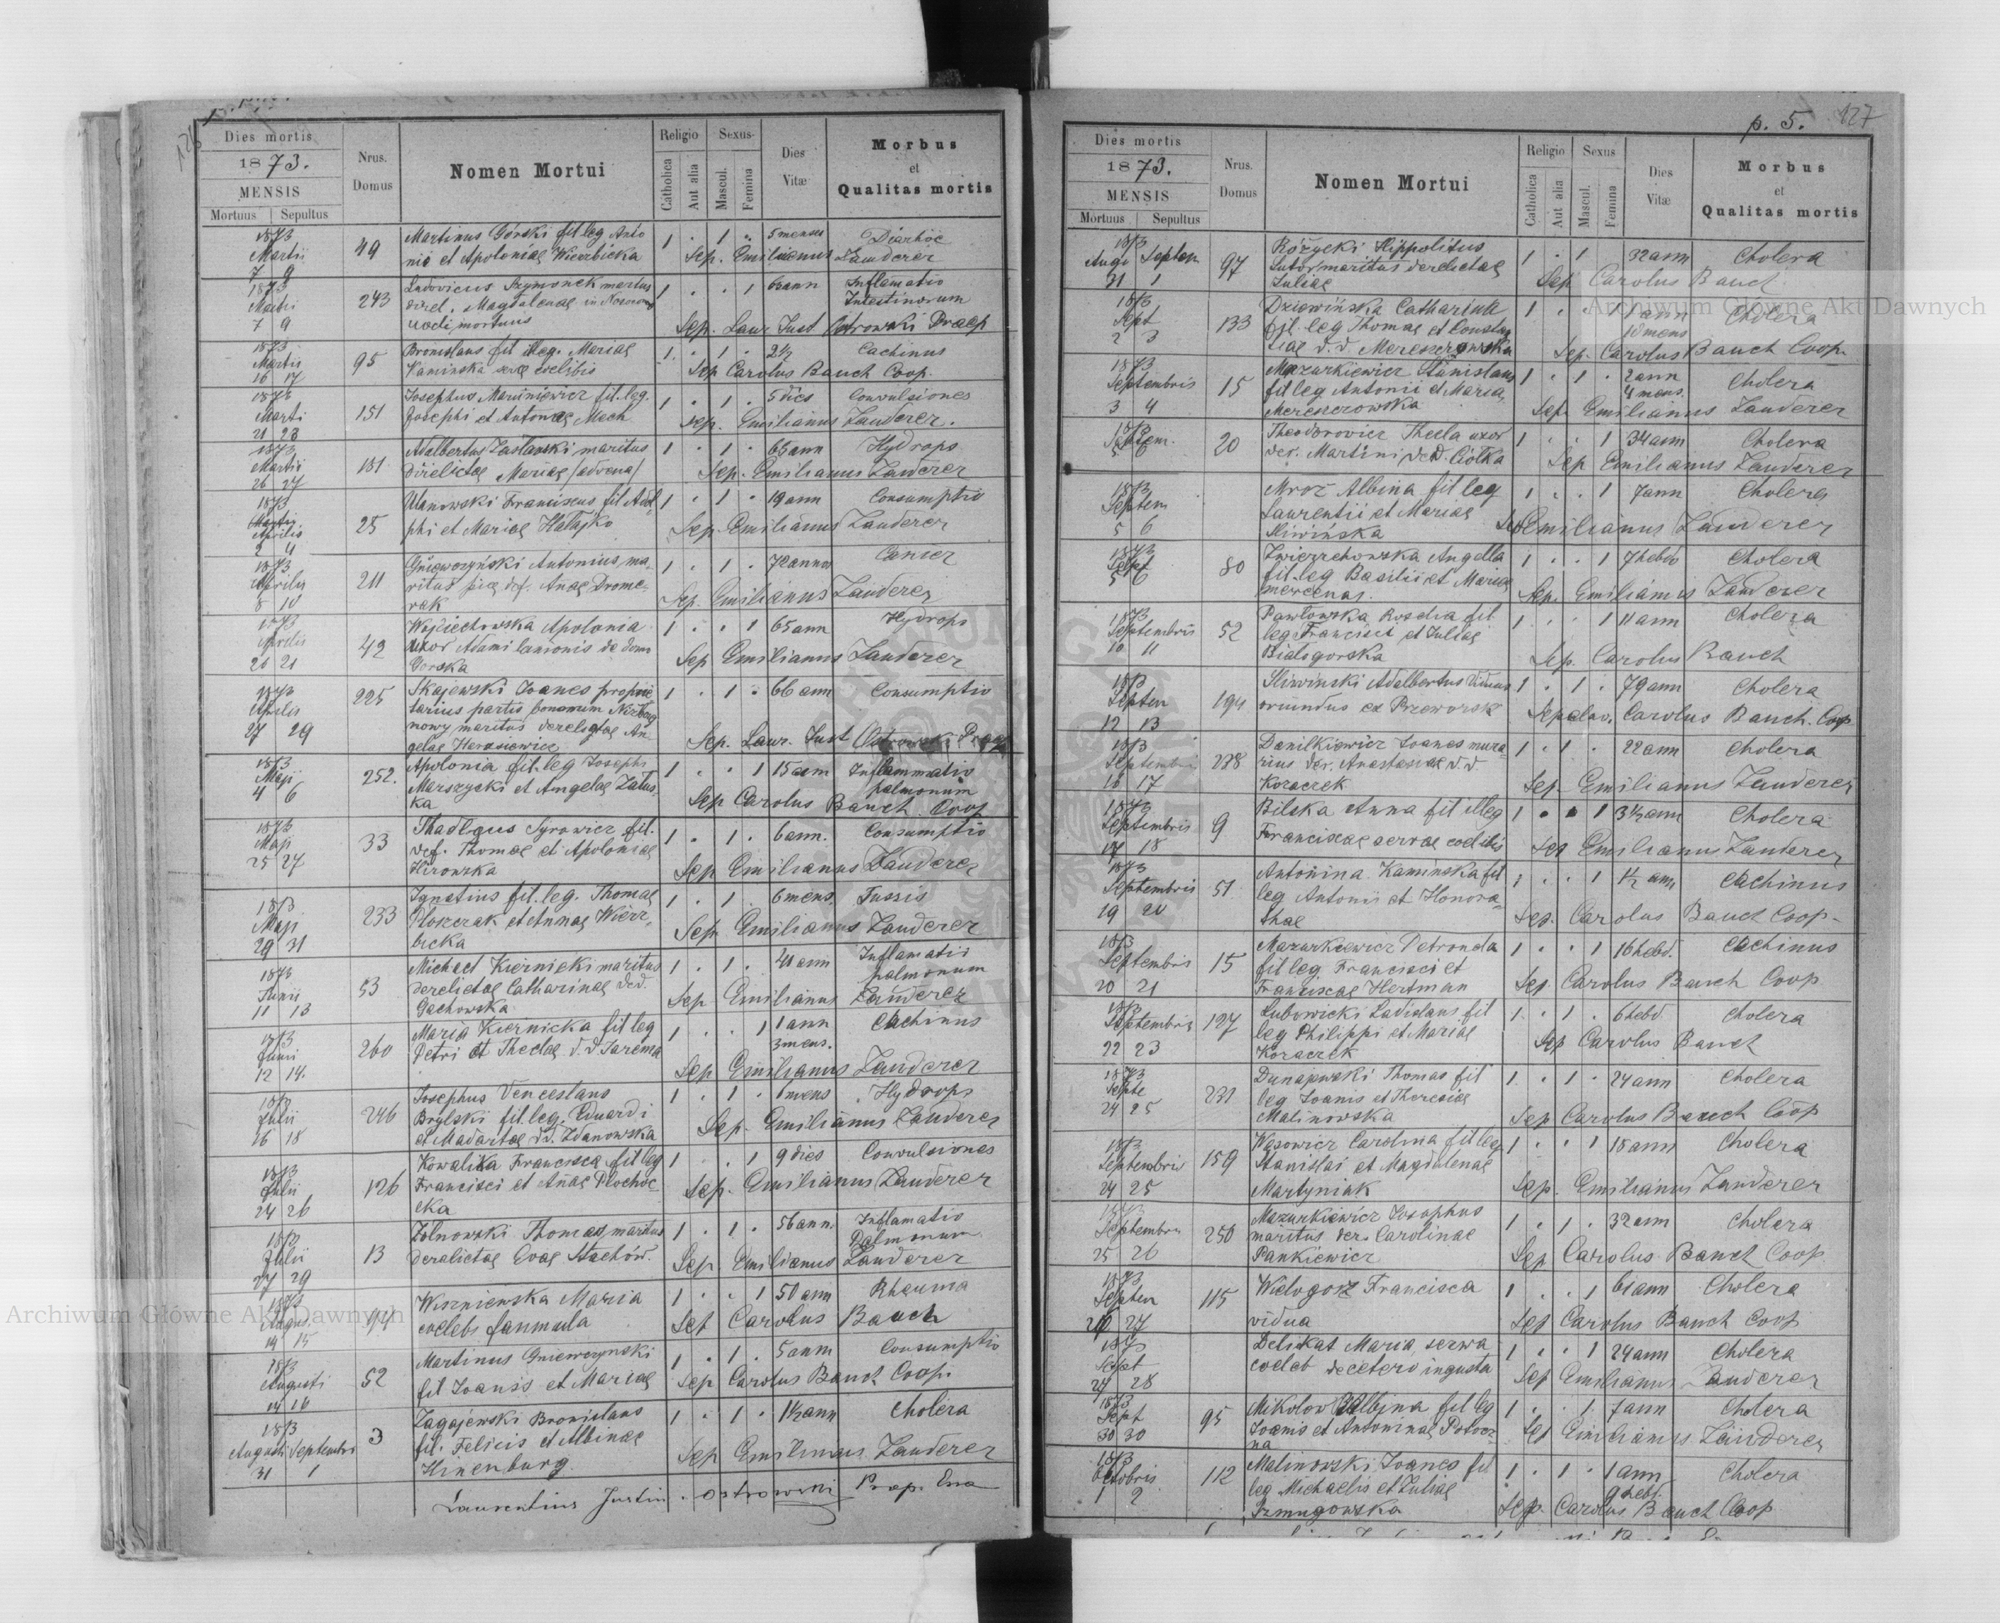 Dies mortis
1873.
MENSIS
Mortuus Sepultus
Nrus. Domus
Nomen Mortui
Religio
Catholica
Aut alia
Sexus
Mascul.
Femina
Dies Vitæ
Morbus
et
Qualitas mortis
1873 Martinus Górski fil leg Anto 1 . 1 . 5 menses Diarhöe
Martii 49 nii et Apoloniae Wierbicka Sep. Emilianus Lauderer
7 9
1873 Ludovicus Szymonek maritus 1 . . 1 62 ann Inflamatio
Martii 243 derel. Magdalenae in Intestinorum
7 9 mortuus Sep. Laur. Just Ostrowski Praep
1873 Bronislaus fil illeg. Mariae 1 . 1 . 2½ Cachinus
Martii 95 Kaminska coelibis Sep Carolus Bauch Coop.
16 17
1873 Josephus fil. leg. 1 . 1 . 5 dies Convulsiones
Marti 151 Josephi et Antonae Mech Sep. Emilianus Lauderer.
21 23
1873 Adalbertus Zaslawski maritus 1 . 1 . 65 ann Hydrops
Martii 181 direlictae Mariae /advena/ Sep. Emilianus Lauderer
26 27
1873 Ulanowski Franciscus fil Adol 1 . 1 . 19 ann Consumptio
Aprilis 25 phi et Mariae Hatajko Sep. Emilianus Lauderer
2 4
1873 Gniewczyński Antonius ma- 1 . 1 . 72 annos Cancer
Aprilis 211 ritus def. Annae Drome-
8 10 rak Sep. Emilianus Lauderer
1873 Wojciechowska Apolonia 1 . . 1 65 ann Hydrops
Aprilis 42 uxor Adami lanionis de domo
20 21 Gorska Sep Emilianus Lauderer
1873 Skajewski Joanes proprie 1 . 1 . 66 ann Consumptio
Aprilis 225 tarius partis bonorum
27 29 maritus derelictae An-
gelae Herasiewicz Sep. Laur. Just Ostrowski Praep
1873 Apolonia fil. leg Josephi 1 . . 1 15 ann Inflammatio
Maji 252. Marszycki et Angelae Zatus- palmonum
4 6 ka Sep Carolus Bauch Coop
1873 Thadeus Syrowicz fil. 1 . 1 . 6 ann. Consumptio
Maji 33 def. Thomae et Apoloniae
25 27 Kirowska Sep Emilianus Lauderer
1873 Ignatius fil. leg. Thomae 1 . 1 . 6 mens. Tussis
Maji 233 Ploszczak et Annae Wierz-
29 31 bicka Sep. Emilianus Lauderer
1873 Michael Kiernicki maritus 1 . 1 . 41 ann Inflamatii
Junii 53 derelictae Catharinae de d. palmonum
11 13 Gachowska Sep Emilianus Lauderer
1873 Maria Kiernicka fil leg 1 . . 1 1 ann Cachinus
Junii 260 Petri et Theclae d. d Jarema 3 mens.
12 14. Sep Emilianus Lauderer
1873 Josephus Venceslaus 1 . 1 . 6 mens Hydrops
Julii 246 Brylski fil. leg. Eduardi
16 18 d d. Zdanowska Sep. Emilianus Lauderer
1873 Kowalika Francisca fil leg 1 . . 1 9 dies Convulsiones
Julii 126 Francisci et Annae Plochoc-
24 26 cka Sep. Emilianus Lauderer
1873 Zolnowski Thomas maritus 1 . 1 . 56 ann. Inflamatio
Julii 13 derelictae Evae Stachów. Palmonum
27 29 Sep. Emilianus Lauderer
1873 Wiszniewska Maria 1 . . 1 50 ann Rheuma
August. coelebs famula Sep Carolus Bauch
14 15
1873 Martinus Gniewczynski 1 . 1 . 5 ann Consumptio
Augusti 52 fil Joanis et Mariae Sep Carolus Bauch Coop.
14 16
1873 Zagajewski Bronislaus 1 . 1 . 1½ ann Cholera
Augusti Septembri 3 fil. Felicis et Albinae
31 1 Hinenburg Sep Emilianus Lauderer
Laurentius Justin. Ostrowski Praep.
p. 5. 127
Dies mortis
1873.
MENSIS
Mortuus Sepultus
Nrus. Domus
Nomen Mortui
Religio
Catholica
Aut alia
Sexus
Mascul.
Femina
Dies Vitæ
Morbus
et
Qualitas mortis
1873 Różycki Hippolitus 1 . 1 32 ann Cholera
Augu Septem 97 Sutor maritus derelictae
31 1 Juliae Sep Carolus Bauch
1873 Dziewińska Catharina 1 . . 1 ann Cholera
Sept 133 fil. leg Thomae et Constan 10 mens
2 3 tiae d. d Mereszowska Sep. Carolus Bauch Coop.
1873 Mazurkiewicz Stanislaus 1 . 1 . 2 ann Cholera
Septembris 15 fil leg Antonii et Maria 4 mens.
3 4 Mereszerowska Sep. Emilianus Lauderer
1873 Theodorovicz Thecla uxor 1 . . 1 34 ann Cholera
Septem. 20 der. Martini de d. Ciolka Sep Emilianus Lauderer
5 6
1873 Mroz Albina fil leg 1 . . 1 7 ann Cholera
Septem Laurentii et Mariae
5 6 Sliwińska Sep Emilianus Lauderer
1873 Zwierzchowska Angella 1 . . 1 7 hebd Cholera
Sept 80 fil. leg Basilii et Mariae
5 6 mercenar. Sep. Emilianus Lauderer
1873 Pawlowska Rosalia fil 1 . . 1 11 ann Cholera
Septembris 52 leg Francisci et Juliae
10 11 Bialogorska Sep. Carolus Bauch
1873 Sliwinski Adalbertus viduus 1 . 1 . 79 ann Cholera
Septem 194 oriundus ex Przeworsk
12 13 Carolus Bauch. Coop
1873 Danilkiewicz Joanes mura- 1 . 1 . 22 ann Cholera
Septembri 228 rius der. Anastasiae d. d.
16 17 Koraczek Sep. Emilianus Lauderer
1873 Bilska Anna fil illeg 1 . . 1 3½ ann Cholera
Septembris 9 Franciscae servae coelibis
17 18 Sep Emilianus Lauderer
1873 Antonina Kaminska fil 1 . . 1 1½ ann Cachinus
Septembris 51 leg Antonii et Honora-
19 20 thae Sep. Carolus Bauch Coop.
1873 Mazurkiewicz Petronela 1 . . 1 16 hebd. Cachinus
Septembris 15 fil leg. Francisci et
20 21 Franciscae Hertman Sep. Carolus Bauch Coop
1873 Lubowicki Ladislaus fil 1 . 1 . 6 hebd Cholera
Septembris 127 leg Philippi et Mariae
22 23 Koraczek Sep Carolus Bauch
1873 Dunajewski Thomas fil 1 . 1 . 24 ann Cholera
Septe 231 leg Joanis et Theresiae
24 25 Malinowska Sep Carolus Bauch Coop
1873 Wąsowicz Carolina fil leg 1 . . 1 18 ann Cholera
Septembris 159 Stanislai et Magdalenae
24 25 Martyniak Sep. Emilianus Lauderer
1873 Mazurkiewicz Josephus 1 . 1 . 32 ann Cholera
Septembris 250 maritus der. Carolinae
25 26 Pankiewicz Sep Carolus Bauch Coop
1873 Wielogorz Francisca 1 . . 1 61 ann Cholera
Septem 115 vidua Sep Carolus Bauch Coop
26 27
1873 Delikat Maria serva 1 . . 1 24 ann Cholera
Sept coeleb de cetero ingusta
27 28 Sep Emilianus Lauderer
1873 Mikolow Albina fil leg 1 . . 1 7 ann Cholera
Sept 95 Joanis et Antoninae Potocz-
30 30 na Sep Emilianus Lauderer
1873 Malinowski Joanes fil 1 . 1 . 1 ann Cholera
Octobris 112 leg Michaelis et Juliae 9 hebd.
1 2 Szmugowska Sep. Carolus Bauch Coop
Archiwum Główne Akt Dawnych
Archiwum Główne Akt Dawnych